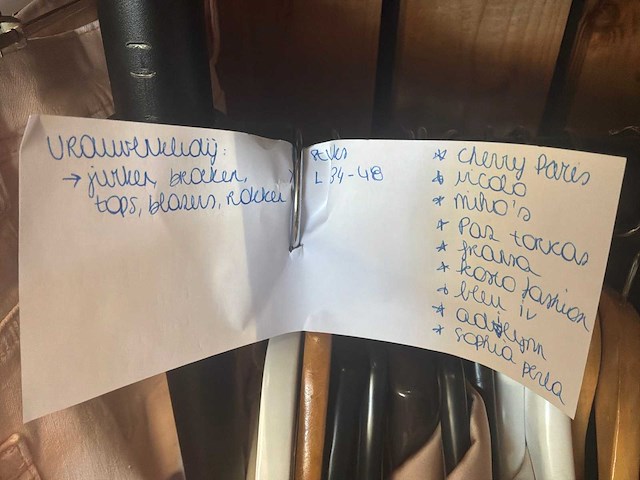 Vrouwenkledij:
→ jurken, broeken,
tops, blazers, rokken
L 34-48
* cherry Paris
* nicolo
* miho's
* Paz torras
* fransa
* koko fashion
* bleu iv
* adilynn
* sophia perla